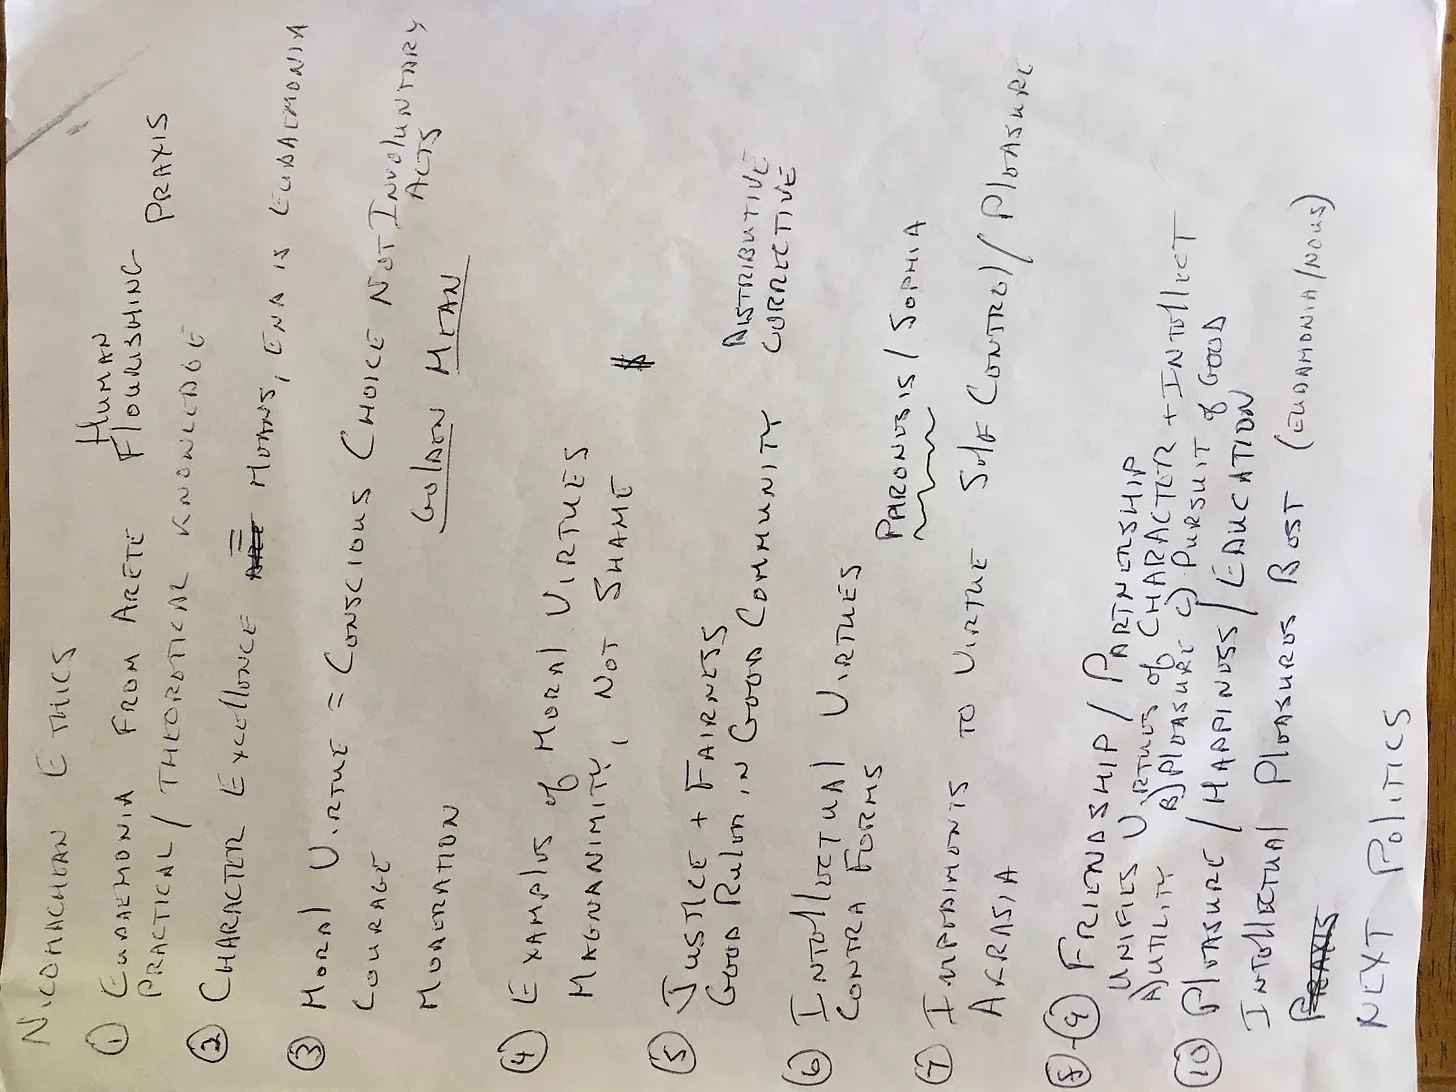 NICOMACHEAN ETHICS
① EUDAEMONIA FROM ARETE HUMAN FLOURISHING PRAXIS
PRACTICAL / THEORETICAL KNOWLEDGE
② CHARACTER EXCELLENCE = MEANS, END IS EUDAEMONIA
③ MORAL VIRTUE = CONSCIOUS CHOICE NOT INVOLUNTARY ACTS
COURAGE
MODERATION GOLDEN MEAN
④ EXAMPLES of MORAL VIRTUES
MAGNANIMITY, NOT SHAME
⑤ JUSTICE + FAIRNESS DISTRIBUTIVE
GOOD RULER IN GOOD COMMUNITY CORRECTIVE
⑥ INTELLECTUAL VIRTUES PARONESIS / SOPHIA
CONTRA FORMS
⑦ IMPEDIMENTS TO VIRTUE SELF CONTROL / PLEASURE
AKRASIA
⑧-⑨ FRIENDSHIP / PARTNERSHIP
UNIFIES VIRTUES of CHARACTER + INTELLECT
A) UTILITY B) PLEASURE C) PURSUIT of GOOD
⑩ PLEASURE / HAPPINESS / EDUCATION
INTELLECTUAL PLEASURES BEST (EUDAMONIA/NOUS)
NEXT POLITICS